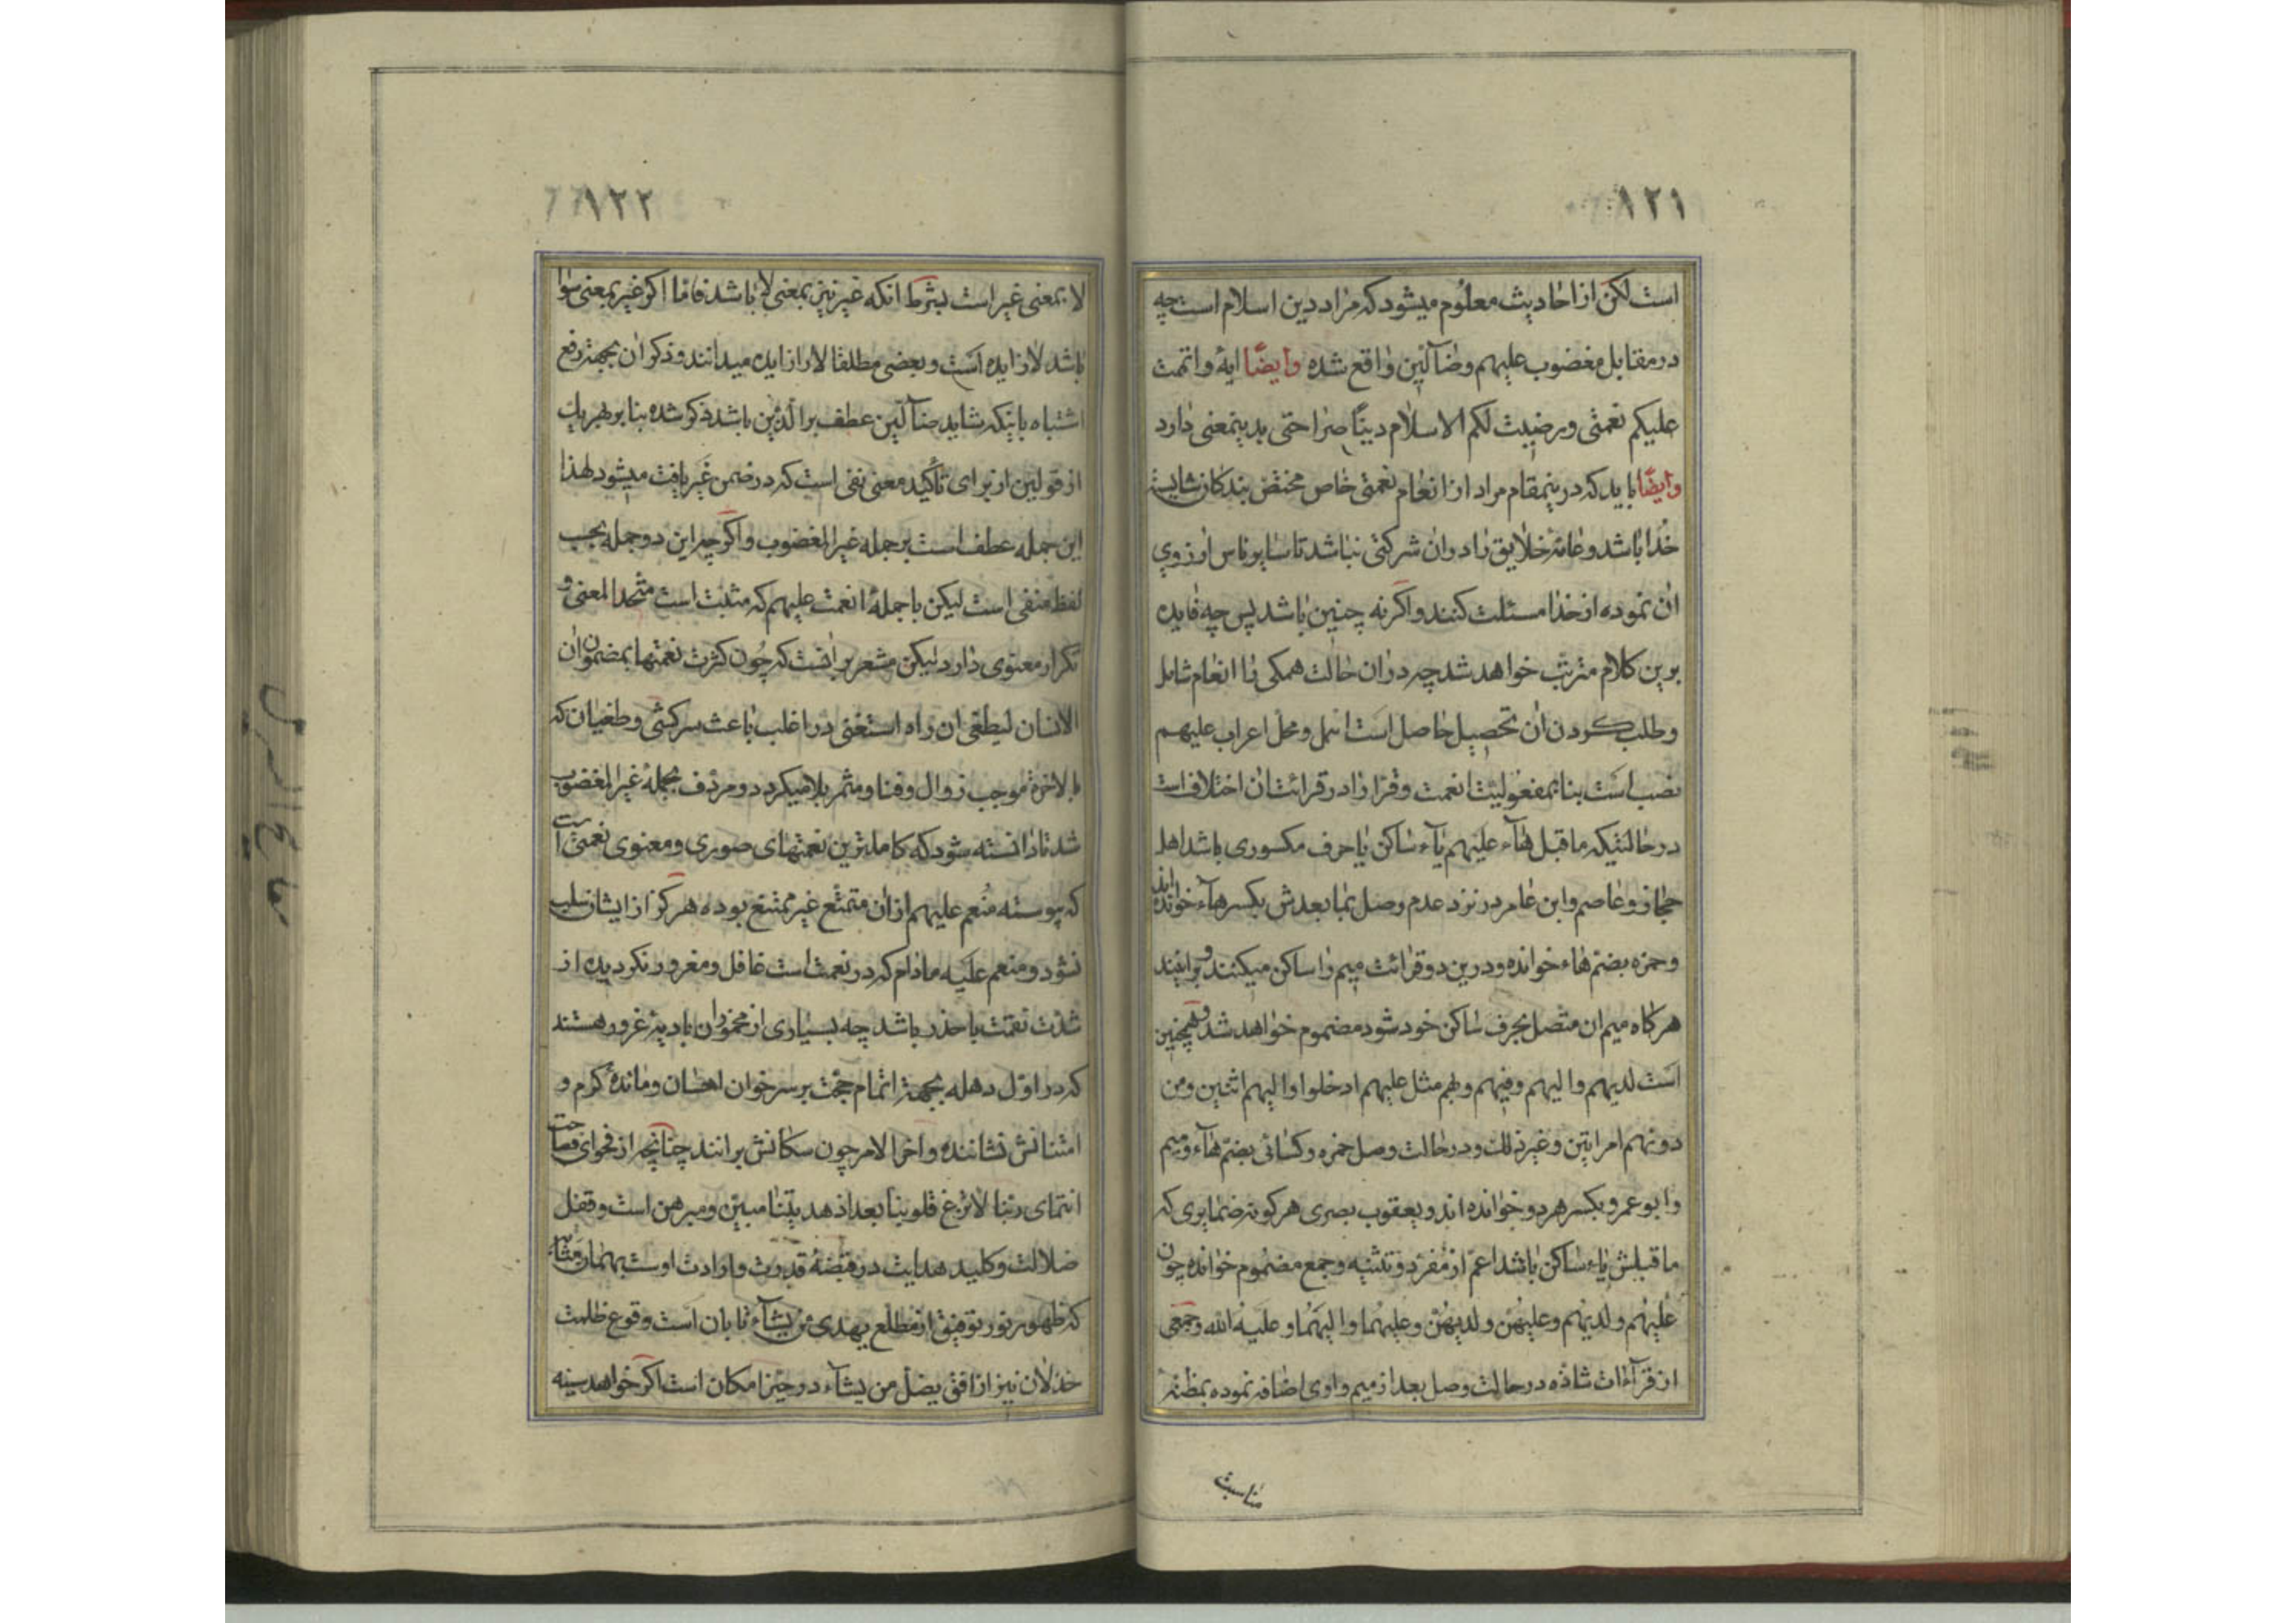 ١٢١
است لکن از احادیث معلوم میشود که مراد دین اسلام است چه
در مقابل مغضوب علیهم وضآلین واقع شده وایضا ایهٔ واتممت
علیکم نعمتی ورضیت لکم الاسلام دینا صراحتی بدینمعنی دارد
وایضا باید که درینمقام مراد از انعام نعمتی خاص مختص بندکان شایسته
خدا باشد وعامهٔ خلایق را دران شرکتی نباشد تا سایر ناس ارزوی
ان نموده از خدا مسئلت کنند واکرنه چنین باشد پس چه فایده
برین کلام مترتب خواهد شد چه دران حالت همکی را انعام شامل
وطلب کردن ان تحصیل حاصل است ومحل اعراب علیهم
نصب است بنا بمفعولیت انعمت وقرا را در قرائت ان اختلاف است
در حالتیکه ماقبل هآء علیهم یآء ساکن یا حرف مکسوری باشد اهل
حجاز وعاصم وابن عامر در نزد عدم وصل بما بعدش بکسر هآء خوانده اند
وحمزه بضم هاء خوانده ودرین دو قرائت میم را ساکن میکنند وبرانند
هرکاه میم ان متصل بحرف ساکن خود شود مضموم خواهد شد وهمچنین
است لدیهم والیهم وفیهم وبهم مثل علیهم ادخلوا والیهم اثنین ومن
دونهم امراتین وغیر ذلک ودر حالت وصل حمزه وکسائی بضم هآء ومیم
وابو عمرو بکسر هردو خوانده اند ویعقوب بصری هرکونه ضمایری که
ماقبلش یاء ساکن باشد اعم از مفرد وتثنیه وجمع مضموم خوانده چون
علیهم ولدیهم وعلیهن ولدیهن وعلیهما والیهما وعلیه الله وجمعی
از قرآءات شاذه در حالت وصل بعد از میم واوی اضافه نموده بمظنهٔ
مناسبت
١٢٢
لا بمعنی غیر است بشرط انکه غیر نیز بمعنی لا باشد فاما اکر غیر بمعنی سوا
باشد لا زایده است وبعضی مطلقا لا را زایده میدانند وذکر ان بجهة رفع
اشتباه باینکه شاید ضآلین عطف بر الذین باشد ذکر شده بنا بر هریک
از قولین از برای تأکید معنی نفی است که در ضمن غیر یافت میشود لهذا
این جمله عطف است بر جمله غیر المغضوب واکرچه این دو جمله بحسب
لفظ منفی است لیکن با جملهٔ انعمت علیهم که مثبت است متحد المعنی و
تکرار معنوی دارد لیکن مشعر برانست که چون کثرت نعمتها بمضمون ان
الانسان لیطغی ان راه استغنی در اغلب باعث سرکشی وطغیان که
بالاخرة موجب زوال وفنا ومثمر بلا میکردد ومردف بجملهٔ غیر المغضوب
شد تا دانسته شود که کاملترین نعمتهای صوری ومعنوی نعمتی است
که پیوسته منعم علیهم ازان متمتع غیر ممتنع بوده هرکز از ایشان سلب
نشود ومنعم علیه مادام که در نعمت است غافل ومغرور نکردیده از
شدت نقمت باحذر باشد چه بسیاری از مخموران بادیهٔ غرور هستند
که در اول دهله بجهة اتمام حجت بر سر خوان احسان ومائدهٔ کرم و
امتنانش نشانند واخر الامر چون سکانش برانند چنانچه از فحوای فصاحت
انتمای ربنا لاتزغ قلوبنا بعد اذ هدیتنا مبین ومبرهن است وقفل
ضلالت وکلید هدایت در قبضهٔ قدرت وارادت اوست
که ظهور نور توفیق از مطلع یهدی من یشآء تابان است وقوع ظلمت
خذلان نیز از افق یضل من یشآء در حیز امکان است اکر خواهد سینه